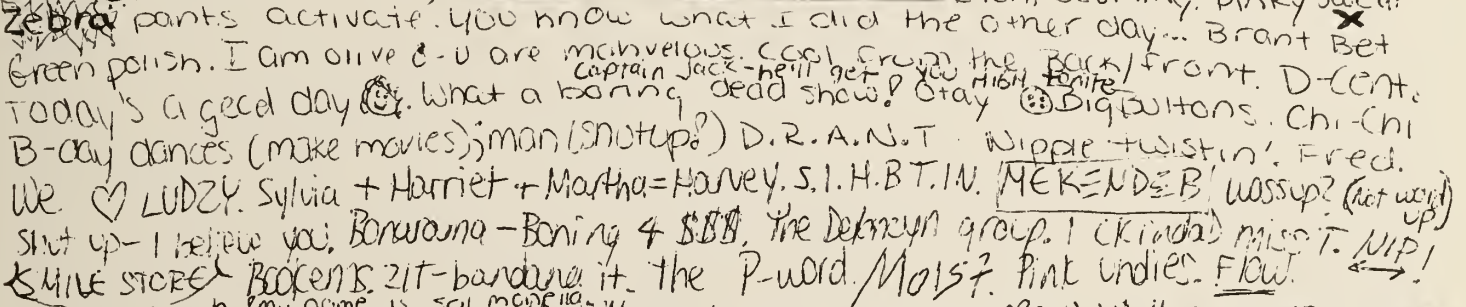 Zebra pants activate. you know what I did the other day... Brant Bet
Green polish. I am olive & u are marvelous. cool from the Back/front. D-cent.
Captain Jack-he'll get you HIGH tonite
Today's a gecd day. What a boring dead show! Otay Bigbuttons. Chi-Chi
B-day dances (make movies); man (shutup?) D.R.A.N.T Nipple twistin'. Fred.
We ♡ LUDZY. Sylvia + Harriet + Martha=Harvey. S.I.H.B.T.I.N. MEKENDEB wassup? (not word up)
Shut up-I believe you. Boning 4 $$$. The group. I (kinda) miss T. NIP!
SMILE STORE 21T-bandana it. the P-word. Moist. Pink undies. Flow.
my name is